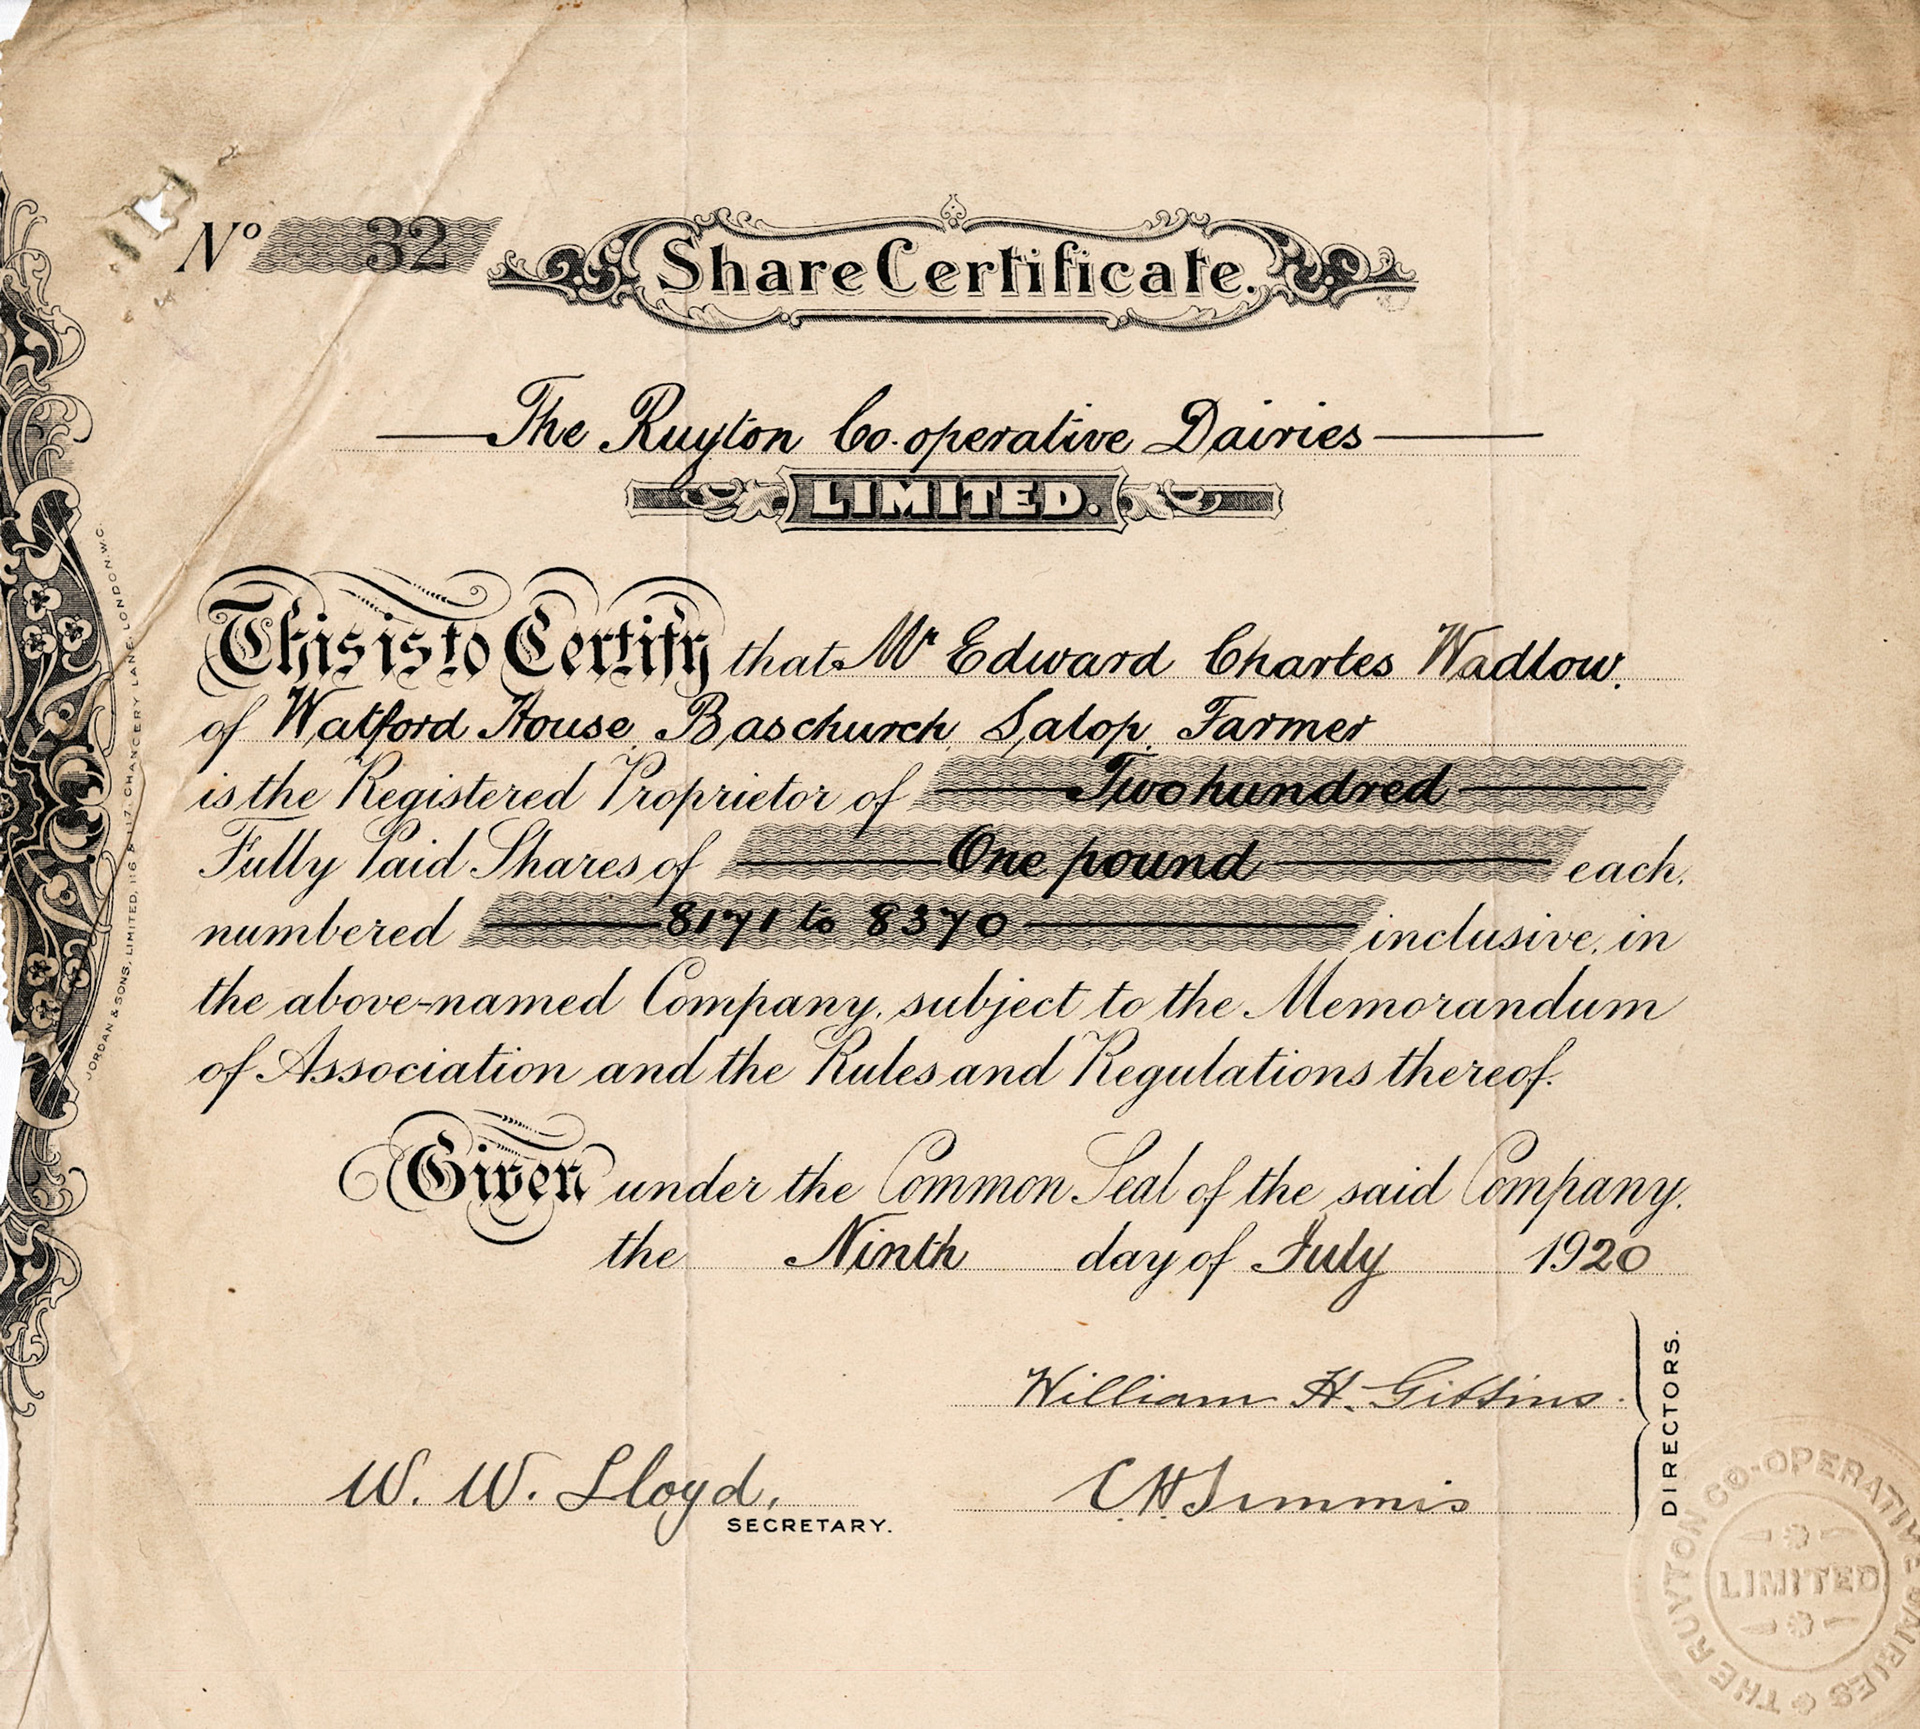 No 32
Share Certificate.
The Ruyton Co-operative Dairies
LIMITED.
This is to Certify that Mr Edward Charles Wadlow.
of Watford House, Baschurch, Salop, Farmer
is the Registered Proprietor of Two hundred
Fully Paid Shares of One pound each,
numbered 8171 to 8370 inclusive, in
the above-named Company, subject to the Memorandum
of Association and the Rules and Regulations thereof.
Given under the Common Seal of the said Company,
the Ninth day of July 1920
William H. Gittins.
C. H. Timmis
DIRECTORS.
W. W. Lloyd,
SECRETARY.
JORDAN & SONS, LIMITED, 116 & 117, CHANCERY LANE, LONDON, W.C.
THE RUYTON CO-OPERATIVE DAIRIES
LIMITED